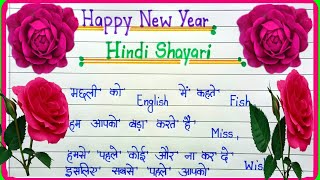 Happy New Year
Hindi Shayari
मछली को English में कहते Fish
हम आपको बड़ा करते है Miss,
हमसे पहले कोई और ना कर दे
इसलिए सबसे पहले आपको Wis